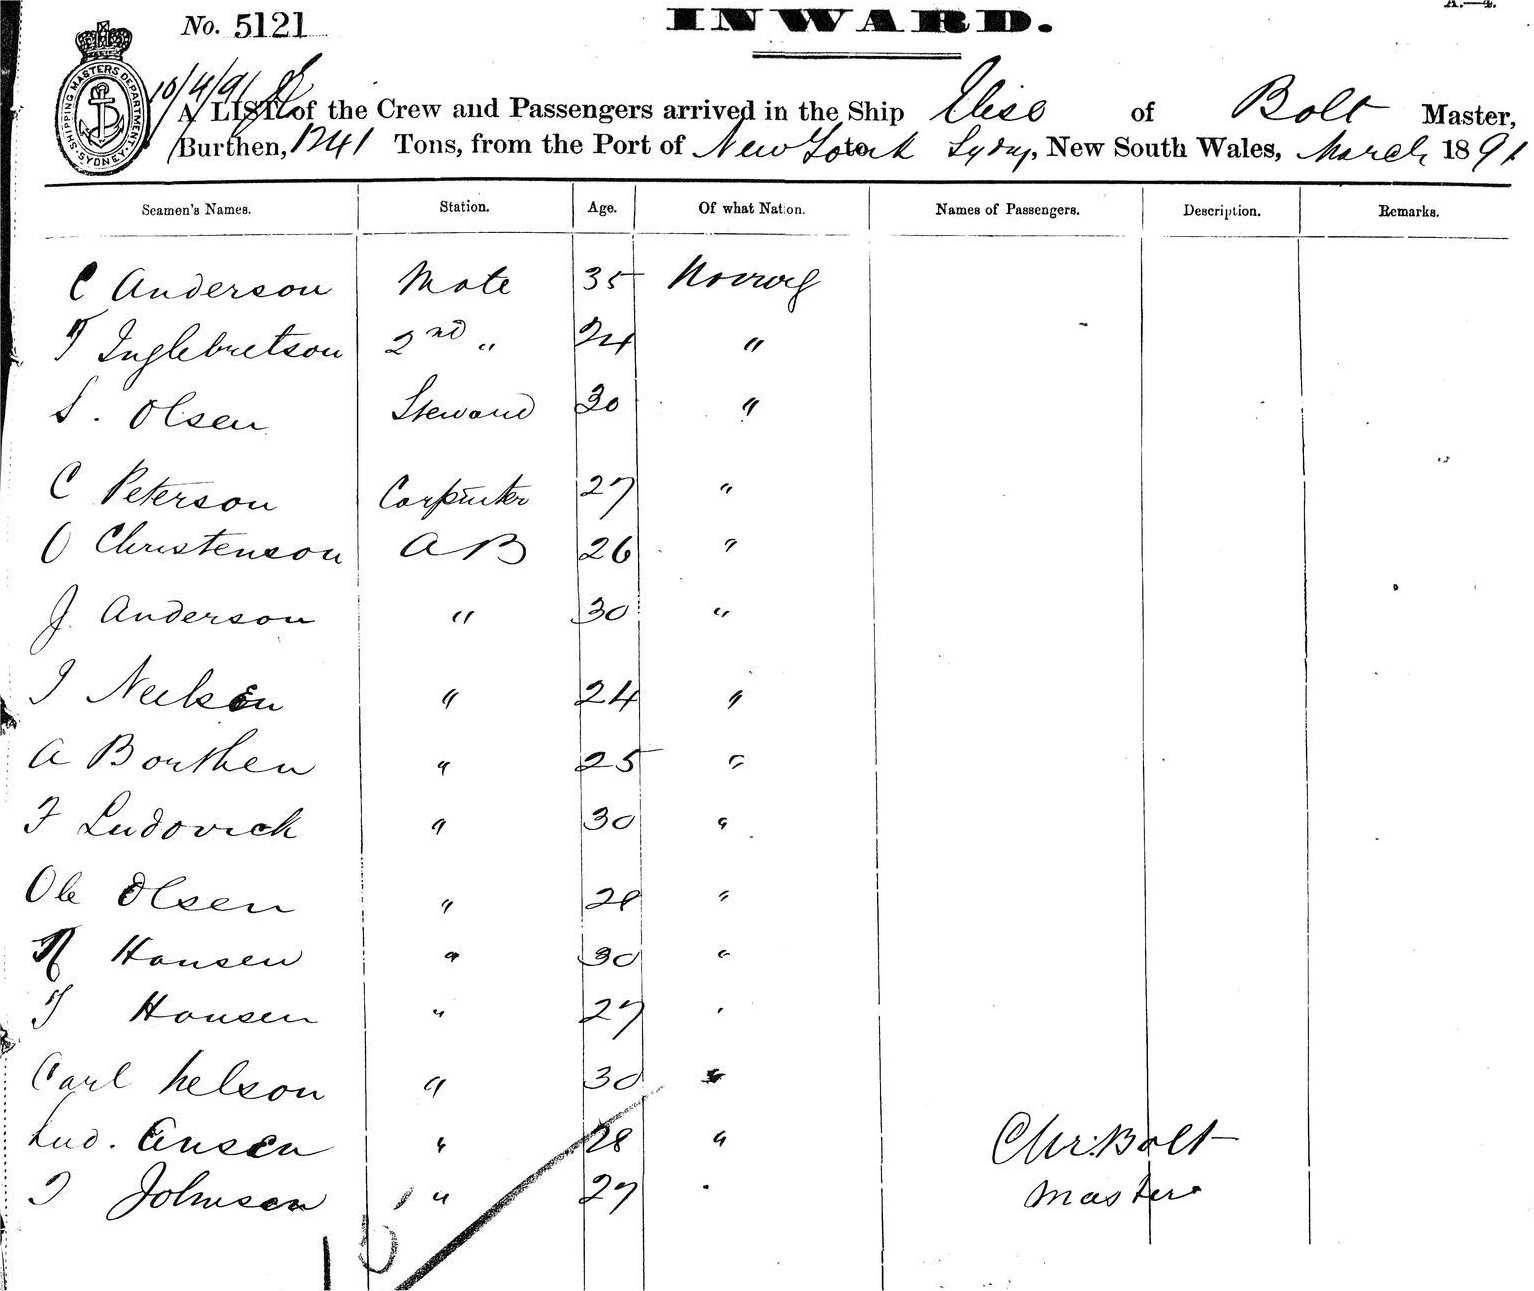 A.—4.
No. 5121
INWARD.
SHIPPING MASTERS DEPARTMENT SYDNEY
10/4/91
A LIST of the Crew and Passengers arrived in the Ship Elise of Bolt Master,
Burthen, 1341 Tons, from the Port of New York to Sydney, New South Wales, March 1891
Seamen's Names. Station. Age. Of what Nation. Names of Passengers. Description. Remarks.
C Anderson Mate 35 Norweg
T Inglebretson 2nd " 24 "
S. Olsen Steward 30 "
C Peterson Carpenter 27 "
O Christenson A B 26 "
J. Anderson " 30 "
J Neelsen " 24 "
A Borthen " 25 "
F Ludovick " 30 "
Ole Olsen " 28 "
Hansen " 30 "
T Hansen " 27 "
Carl Nelson " 30 "
Lud. Ensen " 28 " Chr. Bolt
Johnsen " 27 " Master